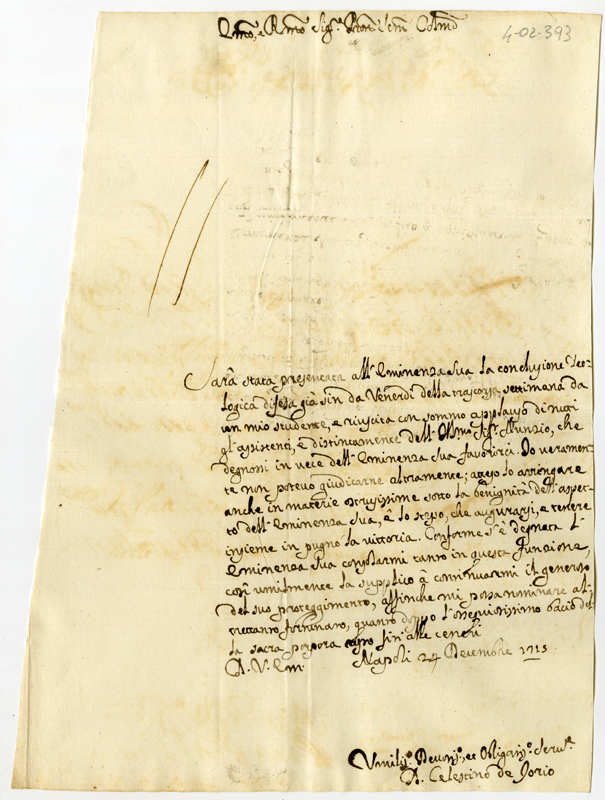 Emo, e Rmo Sig.r Pron' Sem Colmo
4-02-393
Sarà stata presentata all'Eminenza Sua la conclusione Teo-
logica difesa già sin da Venerdì della trascorsa settimana da
un mio studente, e riuscita con sommo applauso di tutti
gl'assistenti, e distintamente dell'Illmo Sig.r Nunzio, che
degnossi in vece dell'Eminenza Sua favorirci. Io veramen-
te non potevo giudicarne altramente; atteso lo arringare
anche in materie astrusissime sotto la benignità dell'aspet-
to dell'Eminenza Sua, è lo stesso, che augurarsi, e tenere
insieme in pugno la vittoria. Conforme s'è degnata l'
Eminenza Sua consolarmi tanto in questa Funzione,
così umilmente la supplico à continuarmi il generoso
del suo proteggimento, affinche mi possa nominare al-
trettanto fortunato, quanto doppo l'ossequiosissimo bacio del-
la sacra porpora sino alle ceneri
D. V. Em. Napoli 24 Decembre 1715
Umiliss.o Devotiss.o, et Obligatiss.o Serv.e
D. Celestino de Iorio